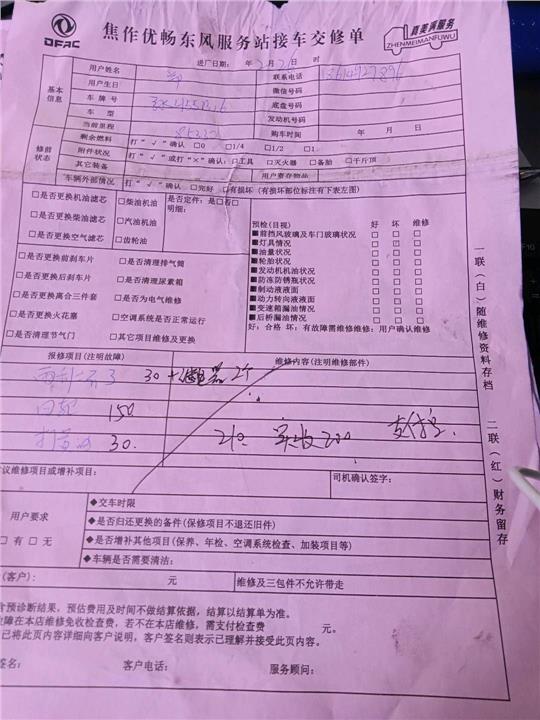 DFAC
焦作优畅东风服务站接车交修单
真美满服务
ZHENMEIMANFUWU
进厂日期: 年 2月26日 时
基本信息
用户姓名
联系电话
用户生日
微信号码
车牌号
底盘号
车型
发动机号码
当前里程
购车时间 年 月 日
修前状态
剩余燃料 打“√”确认 □0 □1/4 □1/2 □1
附件状况 打“√”或打“×”确认:□工具 □灭火器 □备胎 □千斤顶
其它装备
用户寄存物品
车辆外部情况 打“√”确认 □完好 □有损坏(有损坏部位标注有下表左图)
□是否更换机油滤芯 □柴油机油 是否定件:是□否□
□是否更换柴油滤芯 □汽油机油 明细:
□是否更换空气滤芯 □齿轮油
□是否更换前刹车片 □是否清理排气筒
□是否更换后刹车片 □是否清理尿素箱
□是否更换离合三件套 □是否为电气维修
□是否更换火花塞 □空调系统是否正常运行
□是否清理节气门 □其它项目维修及更换
预检(目视) 好 坏 维修
■前挡风玻璃及车门玻璃状况 □ □ □
■灯具情况 □ □ □
■油量状况 □ □ □
■轮胎状况 □ □ □
■发动机机油状况 □ □ □
■防冻防锈瓶状况 □ □ □
■制动液液面 □ □ □
■动力转向液液面 □ □ □
■变速箱漏油情况 □ □ □
■后桥漏油情况 □ □ □
好:合格 坏:有故障需维修维修:用户确认维修
报修项目(注明故障)
维修内容(注明维修部件)
30
2个
150
30.
210 实收200 支付宝.
议维修项目或增补项目:
司机确认签字:
用户要求
□有 □无
◆交车时限
◆是否归还更换的备件(保修项目不退还旧件)
◆是否增补其他项目(保养、年检、空调系统检查、加装项目等)
◆车辆是否需要清洁:
(客户): 元
维修及三包件不允许带走
含预诊断结果,预估费用及时间不做结算依据,结算以结算单为准。
故障在本店维修免收检查费,若不在本店维修,需支付检查费 元。
已将此页内容详细向客户说明,客户签名则表示已理解并接受此页内容。
签名: 客户电话: 服务顾问:
一联(白)随维修资料存档
二联(红)财务留存